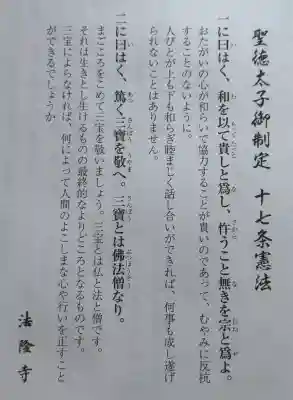 聖徳太子御制定　十七条憲法
一に曰はく、和を以て貴しと為し、忤うこと無きを宗と為よ。
おたがいの心が和らいで協力することが貴いのであって、むやみに反抗
することのないように。
人びとが上も下も和らぎ睦まじく話し合いができれば、何事も成し遂げ
られないことはありません。
二に曰はく、篤く三寶を敬へ。三寶とは佛法僧なり。
まごころをこめて三宝を敬いましょう。三宝とは仏と法と僧です。
それは生きとし生けるものの最終的なよりどころとなるものです。
三宝によらなければ、何によって人間のよこしまな心や行いを正すこと
ができるでしょうか
法隆寺